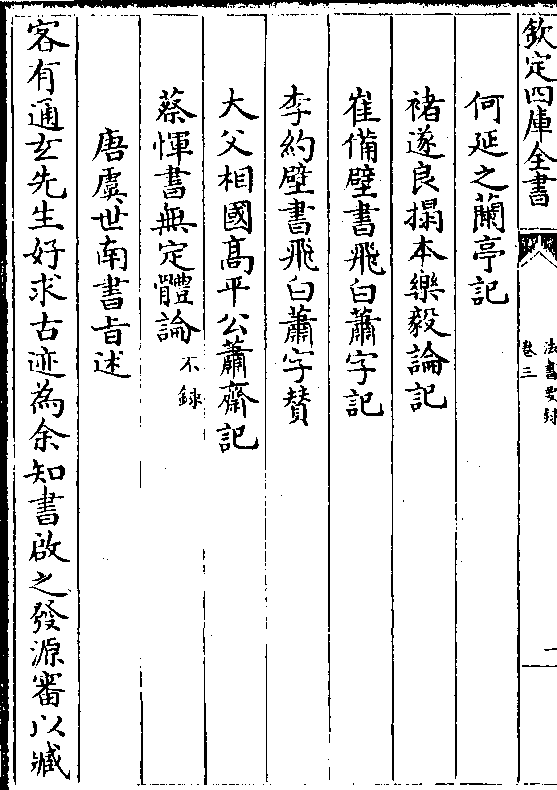 欽定四庫全書
法書要録
卷三
一
何延之蘭亭記
褚遂良搨本樂毅論記
崔備壁書飛白蕭字記
李約壁書飛白蕭字贊
大父相國髙平公蕭齋記
蔡惲書無定體論不録
唐虞世南書旨述
客有通玄先生好求古迹為余知書啟之發源審以臧